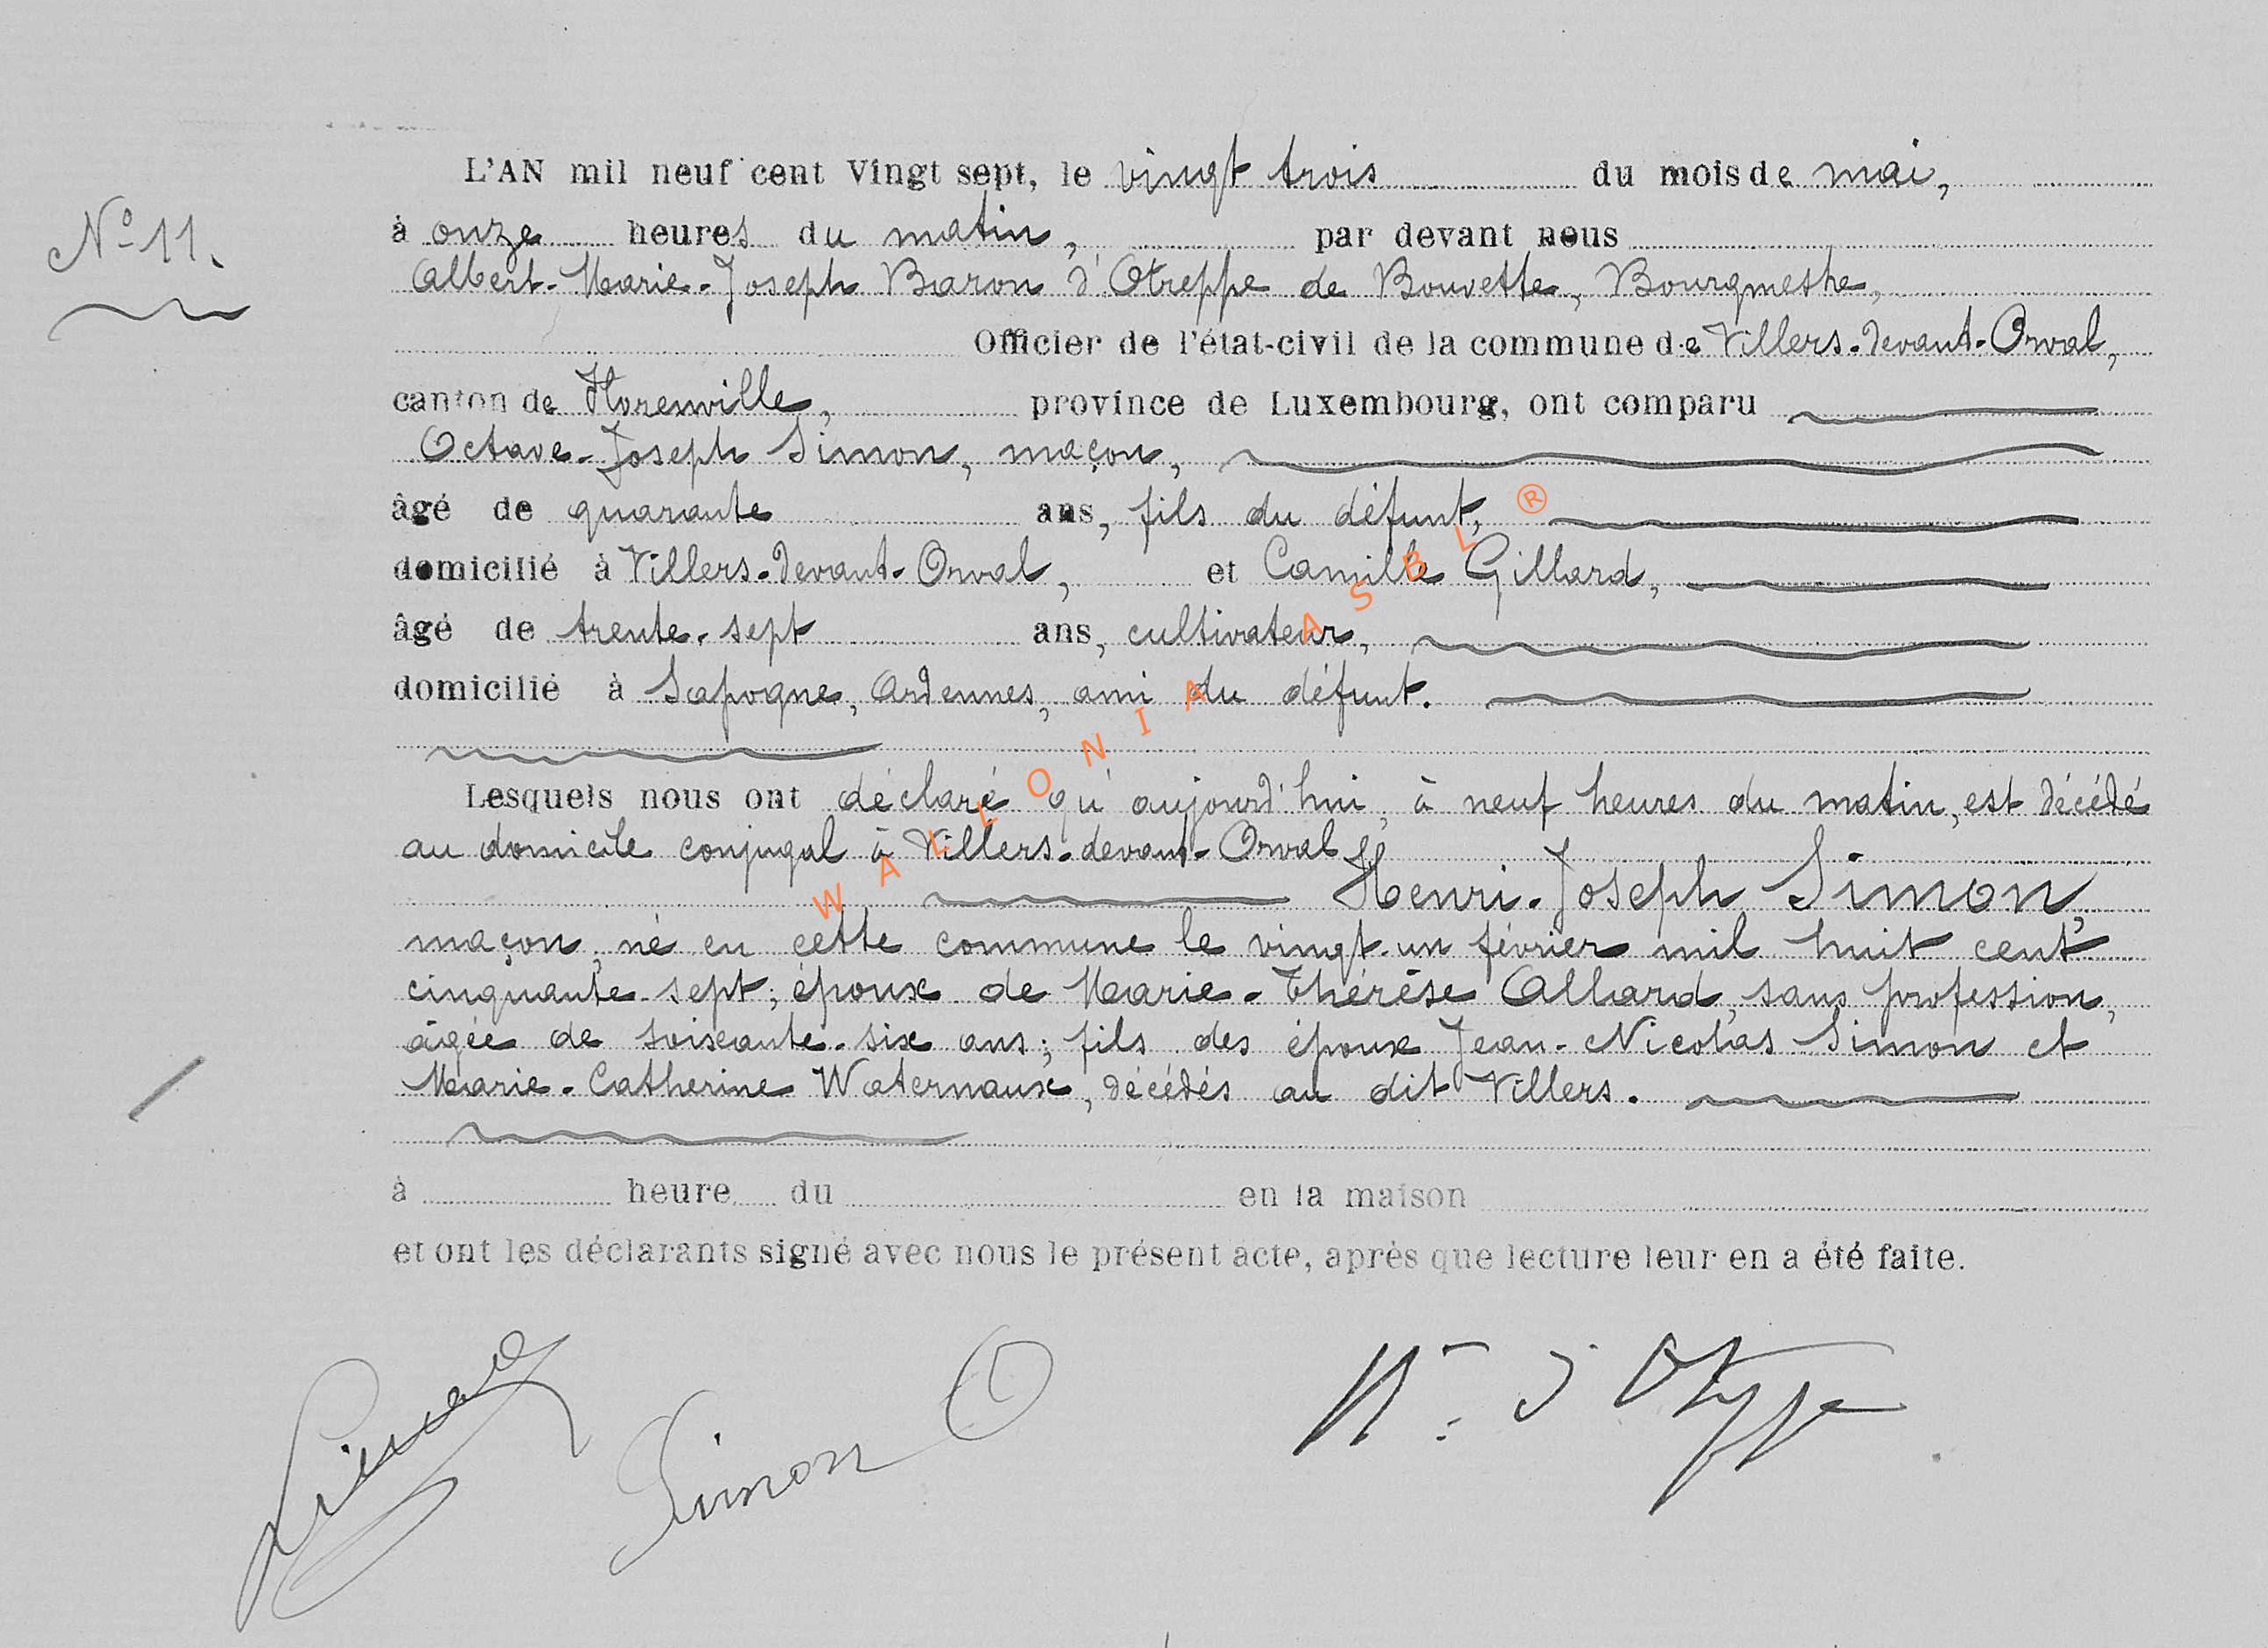 L'AN mil neuf cent Vingt sept, le vingt trois du mois de mai,
N° 11.
à onze heures du matin, par devant nous
Albert-Marie-Joseph Baron d'Otreppe de Bouvette, Bourgmestre,
Officier de l'état-civil de la commune de Villers-devant-Orval,
canton de Florenville, province de Luxembourg, ont comparu
Octave-Joseph Simon, maçon,
âgé de quarante ans, fils du défunt,
domicilié à Villers-devant-Orval, et Camille Gillard,
âgé de trente-sept ans, cultivateur,
domicilié à Sapogne, Ardennes, ami du défunt.
Lesquels nous ont déclaré qu'aujourd'hui, à neuf heures du matin, est décédé
au domicile conjugal à Villers-devant-Orval
Henri-Joseph Simon,
maçon, né en cette commune le vingt-un février mil huit cent
cinquante-sept; époux de Marie-Thérèse Allard, sans profession,
âgée de soixante-six ans; fils des époux Jean-Nicolas Simon et
Marie-Catherine Waternaux, décédés au dit Villers.
à heure du en la maison
et ont les déclarants signé avec nous le présent acte, après que lecture leur en a été faite.
Simon O
d'Otreppe
WALLONIA ASBL ®